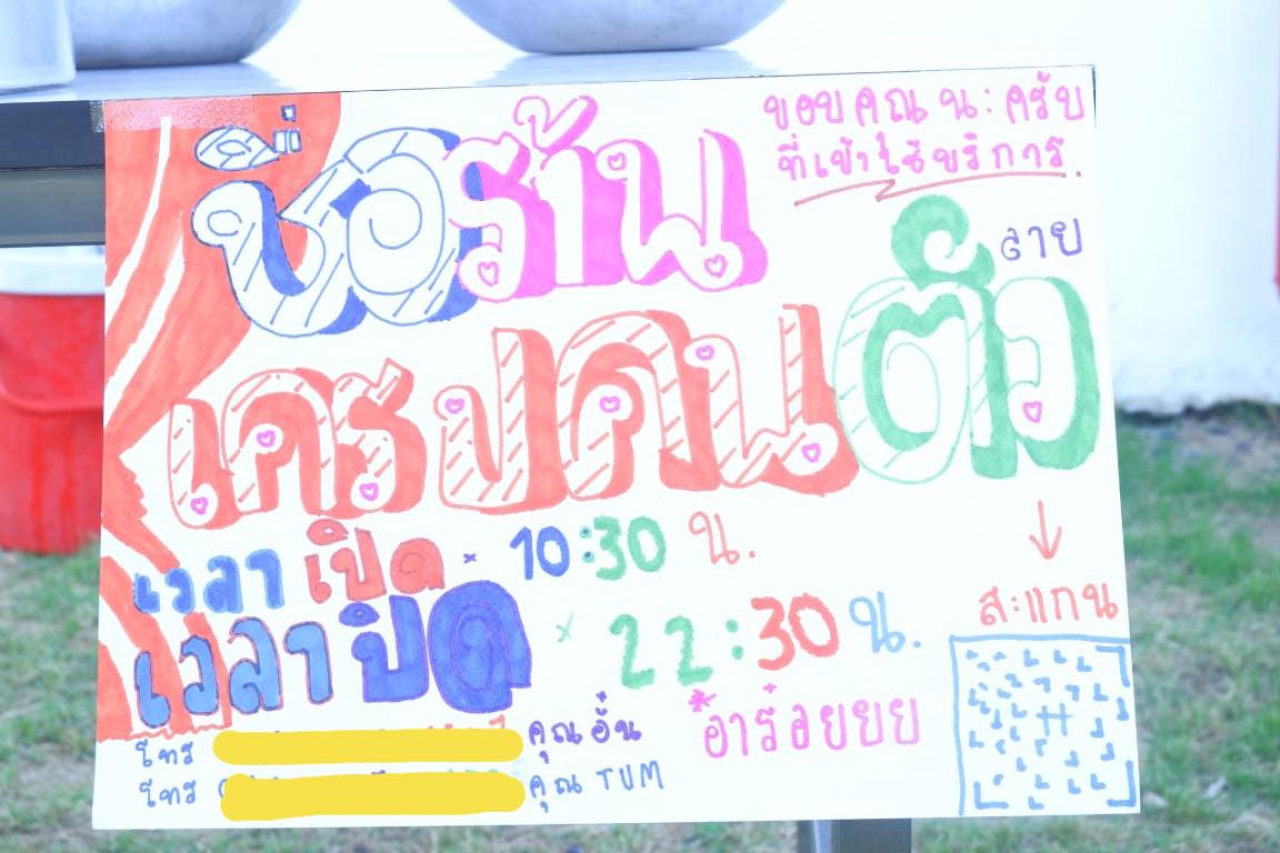 ขอบคุณ น:ครับ
ที่เข้าใช้บริการ.
ชื่อร้าน
ลาย
เครปคนตัว
เวลาเปิด × 10:30 น.
เวลาปิด × 22:30 น.
สะแกน
*อาร่อยยย
โทร คุณอั๋น
โทร คุณ TUM